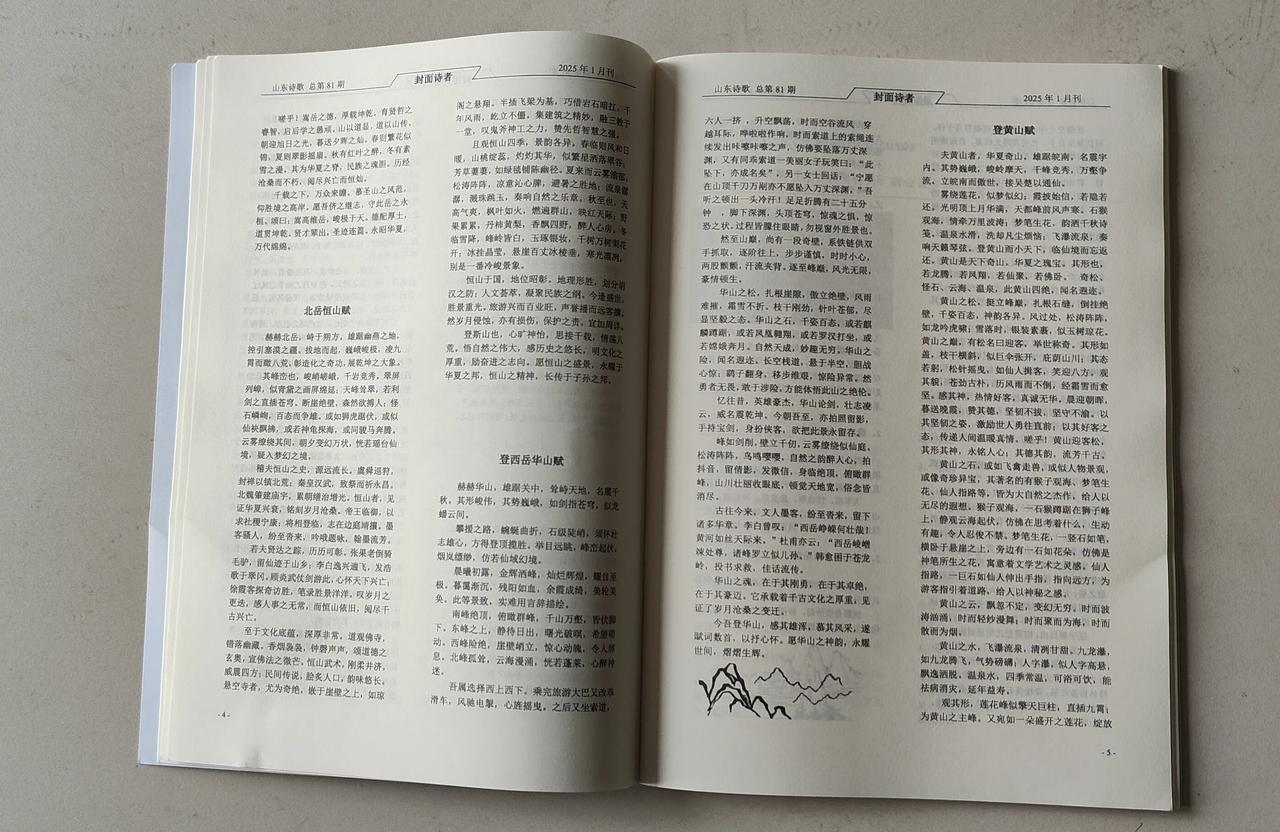 山东诗歌 总第 81 期
封面诗者
2025 年 1 月刊
嗟乎！嵩岳之德，厚载坤乾，育贤哲之
睿智，启后学之愚顽，山以道显，道以山传，
朝迎旭日之光，暮送夕晖之灿。春则繁花似
锦，夏则翠影摇扇。秋有红叶之醉，冬有素
雪之漫。其为华夏之脊，民族之魂胆。历经
沧桑而不朽，阅尽兴亡而恒灿。
千载之下，万众来瞻，慕圣山之风范，
仰胜境之高岸。愿吾侪之继志，守此岳之永
桓。颂曰：嵩高维岳，峻极于天。德配厚土，
道贯坤乾。贤才辈出，圣迹连篇。永昭华夏，
万代绵绵。
北岳恒山赋
赫赫北岳，峙于朔方。雄踞幽燕之地，
控引塞漠之疆。拔地而起，巍峨峻极，凌九
霄而瞰八荒。彰造化之奇功，展乾坤之大象。
其峰峦也，峻峭嵯峨，千岩竞秀，翠屏
列嶂，似青黛之画屏绵延；天峰耸翠，若利
剑之直插苍穹。断崖绝壁，森然欲搏人；怪
石嶙峋，百态而争雄。或如狮虎踞伏，或似
仙袂飘拂，或若神龟探海，或同骏马奔腾。
云雾缭绕其间，朝夕变幻万状，恍若瑶台仙
境，疑入梦幻之境。
稽夫恒山之史，源远流长。虞舜巡狩，
封禅以镇北荒；秦皇汉武，致祭而祈永昌。
北魏肇建庙宇，累朝缮治增光，恒山者，见
证华夏兴衰，铭刻岁月沧桑。帝王临御，以
求社稷宁康；将相登临，志在边庭靖攘。墨
客骚人，纷至沓来，吟哦题咏，翰墨流芳。
若夫贤达之踪，历历可彰。张果老倒骑
毛驴，留仙迹于山乡；李白逸兴遄飞，发浩
歌于翠冈。顾炎武仗剑游此，心怀天下兴亡；
徐霞客探奇访胜，笔录胜景洋洋。叹岁月之
更迭，感人事之无常，而恒山依旧，阅尽千
古兴亡。
至于文化底蕴，深厚非常。道观佛寺，
错落幽藏。香烟袅袅，钟磬声声，颂道德之
玄奥，宣佛法之微芒。恒山武术，刚柔并济，
威震四方；民间传说，脍炙人口，韵味悠长。
悬空寺者，尤为奇绝，嵌于崖壁之上，如琼
- 4 -
阁之悬翔。半插飞梁为基，巧借岩石暗扛，千
年风雨，屹立不僵。集建筑之精妙，融三教于
一堂，叹鬼斧神工之力，赞先哲智慧之强。
且观恒山四季，景韵各异。春临则风和日
暖，山桃绽蕊，灼灼其华，似繁星洒落翠谷；
芳草萋萋，如绿毯铺陈幽径。夏来而云雾滃郁，
松涛阵阵，凉意沁心脾，避暑之胜地；流泉潺
潺，溅珠跳玉，奏响自然之乐章。秋至也，天
高气爽，枫叶如火，燃遍群山，映红天际；野
果累累，丹柿黄梨，香飘四野，醉人心房。冬
临雪降，峰岭皆白，玉琢银妆，千树万树梨花
开；冰挂晶莹，悬崖百丈冰棱垂，寒光凛冽，
别是一番冷峻景象。
恒山于国，地位昭彰。地理形胜，划分胡
汉之防；人文荟萃，凝聚民族之纲。今逢盛世，
胜景重光。旅游兴而百业旺，声誉播而远客攘。
然岁月侵蚀，亦有损伤，保护之责，宜加周详。
登斯山也，心旷神怡，思接千载，情荡八
荒，悟自然之伟大，感历史之悠长，明文化之
厚重，励奋进之志向。愿恒山之盛景，永耀于
华夏之邦，恒山之精神，长传于子孙之邦。
登西岳华山赋
赫赫华山，雄踞关中，耸峙天地，名震千
秋。其形峻伟，其势巍峨，如剑指苍穹，似龙
蟠云间。
攀援之路，蜿蜒曲折，石级陡峭，须怀壮
志雄心，方得登顶揽胜。举目远眺，峰峦起伏，
烟岚缥缈，仿若仙域幻境。
晨曦初露，金辉洒峰，灿烂辉煌，耀目至
极。暮霭渐沉，残阳如血，余霞成绮，美轮美
奂。此等景致，实难用言辞描绘。
南峰绝顶，俯瞰群峰，千山万壑，皆伏脚
下。东峰之上，静待日出，曙光破暝，希望萌
动。西峰险绝，崖壁峭立，惊心动魄，令人屏
息。北峰孤耸，云海漫涌，恍若蓬莱，心醉神
迷。
吾属选择西上西下。乘完旅游大巴又改乘
滑车，风驰电掣，心旌摇曳。之后又坐索道，
山东诗歌 总第 81 期
封面诗者
2025 年 1 月刊
六人一挤 ，升空飘荡，时而空谷流风 穿
越耳际，哗啦啦作响，时而索道上的索绳连
续发出咔嚓咔嚓之声，仿佛要坠落万丈深
渊，又有同乘索道一美丽女子玩笑曰：“此
坠下，亦成名矣”，另一女士回话：“宁愿
在山顶千刀万剐亦不愿坠入万丈深渊，”吾
听之顿出一头冷汗！足足折腾有二十五分
钟 ，脚下深渊，头顶苍穹，惊魂之惧，惊
恐之状。过程皆朦住眼睛，勿视窗外胜景也。
然至山巅，尚有一段奇壁，系铁链供双
手抓取，逐阶往上，步步谨慎，时时小心，
两股颤颤，汗流夹背。逐至峰巅，风光无限，
豪情顿生。
华山之松，扎根崖隙，傲立绝壁，风雨
难摧，霜雪不折。枝干刚劲，针叶苍郁，尽
显坚毅之态。华山之石，千姿百态，或若麒
麟蹲踞，或若凤凰翱翔，或若罗汉打坐，或
若嫦娥奔月。自然天成，妙趣无穷。华山之
险，闻名遐迩。长空栈道，悬于半空，胆战
心惊；鹞子翻身，移步维艰，惊险异常。然
勇者无畏，敢于涉险，方能体悟此山之绝伦。
忆往昔，英雄豪杰，华山论剑，壮志凌
云，威名震乾坤。今朝吾至，亦拍照留影，
手持宝剑，身扮侠客，欲把此景永留存。
峰如剑削，壁立千仞，云雾缭绕似仙庭，
松涛阵阵，鸟鸣嘤嘤，自然之韵醉人心，拍
抖音，留倩影，发微信，身临绝顶，俯瞰群
峰，山川壮丽收眼底，顿觉天地宽，俗念皆
消尽。
古往今来，文人墨客，纷至沓来，留下
诸多华章。李白曾叹：“西岳峥嵘何壮哉！
黄河如丝天际来。”杜甫亦云：“西岳崚嶒
竦处尊，诸峰罗立似儿孙。”韩愈困于苍龙
岭，投书求救，佳话流传。
华山之魂，在于其刚勇，在于其卓绝，
在于其豪迈。它承载着千古文化之厚重，见
证了岁月沧桑之变迁。
今吾登华山，感其雄浑，慕其风采，遂
赋词数首，以抒心怀。愿华山之神韵，永耀
世间，熠熠生辉。
登黄山赋
夫黄山者，华夏奇山，雄踞皖南，名震宇
内。其势巍峨，峻岭摩天，千峰竞秀，万壑争
流，立皖南而傲世，接吴楚以通仙。
雾绕莲花，似梦似幻；霞披始信，若隐若
还。光明顶上月华满，天都峰前风声寒。石猴
观海，情牵万里波涛；梦笔生花，韵洒千秋诗
笺。温泉水滑，洗却凡尘烦恼；飞瀑流泉，奏
响天籁琴弦。登黄山而小天下，临仙境而忘返
还。黄山是天下奇山，华夏之瑰宝。其形也，
若龙腾，若凤翔，若仙聚，若佛卧。 奇松、
怪石、云海、温泉，此黄山四绝，闻名遐迩。
黄山之松，挺立峰巅，扎根石缝，倒挂绝
壁，千姿百态，神韵各异。风过处，松涛阵阵，
如龙吟虎啸；雪落时，银装素裹，似玉树琼花。
黄山之巅，有松名曰迎客，举世称奇。其形如
盖，枝干横斜，似巨伞张开，庇荫山川；其态
若躬，松针摇曳，如仙人揖客，笑迎八方。观
其貌，苍劲古朴，历风雨而不倒，经霜雪而愈
坚。感其神，热情好客，真诚无华。晨迎朝晖，
暮送晚霞，赞其德，坚韧不拔，坚守不渝。以
其坚韧之姿，激励世人勇往直前；以其好客之
态，传递人间温暖真情。嗟乎！黄山迎客松，
其形其神，永铭人心；其德其韵，流芳千古。
黄山之石，或如飞禽走兽，或似人物景观，
或像奇珍异宝，其著名的有猴子观海、梦笔生
花、仙人指路等，皆为大自然之杰作，给人以
无尽的遐想。猴子观海，一石猴蹲踞在狮子峰
上，静观云海起伏，仿佛在思考着什么，生动
有趣，令人忍俊不禁。梦笔生花，一竖石如笔，
横卧于悬崖之上，旁边有一石如花朵，仿佛是
神笔所生之花，寓意着文学艺术之灵感。仙人
指路，一巨石如仙人伸出手指，指向远方，为
游客指引着道路，给人以神秘之感。
黄山之云，飘忽不定，变幻无穷。时而波
涛汹涌，时而轻纱漫舞；时而聚而为海，时而
散而为烟。
黄山之水，飞瀑流泉，清冽甘甜。九龙瀑，
如九龙腾飞，气势磅礴；人字瀑，似人字高悬，
飘逸洒脱。温泉水，四季常温，可浴可饮，能
祛病消灾，延年益寿。
观其形，莲花峰似擎天巨柱，直插九霄；
为黄山之主峰。又宛如一朵盛开之莲花，绽放
- 5 -